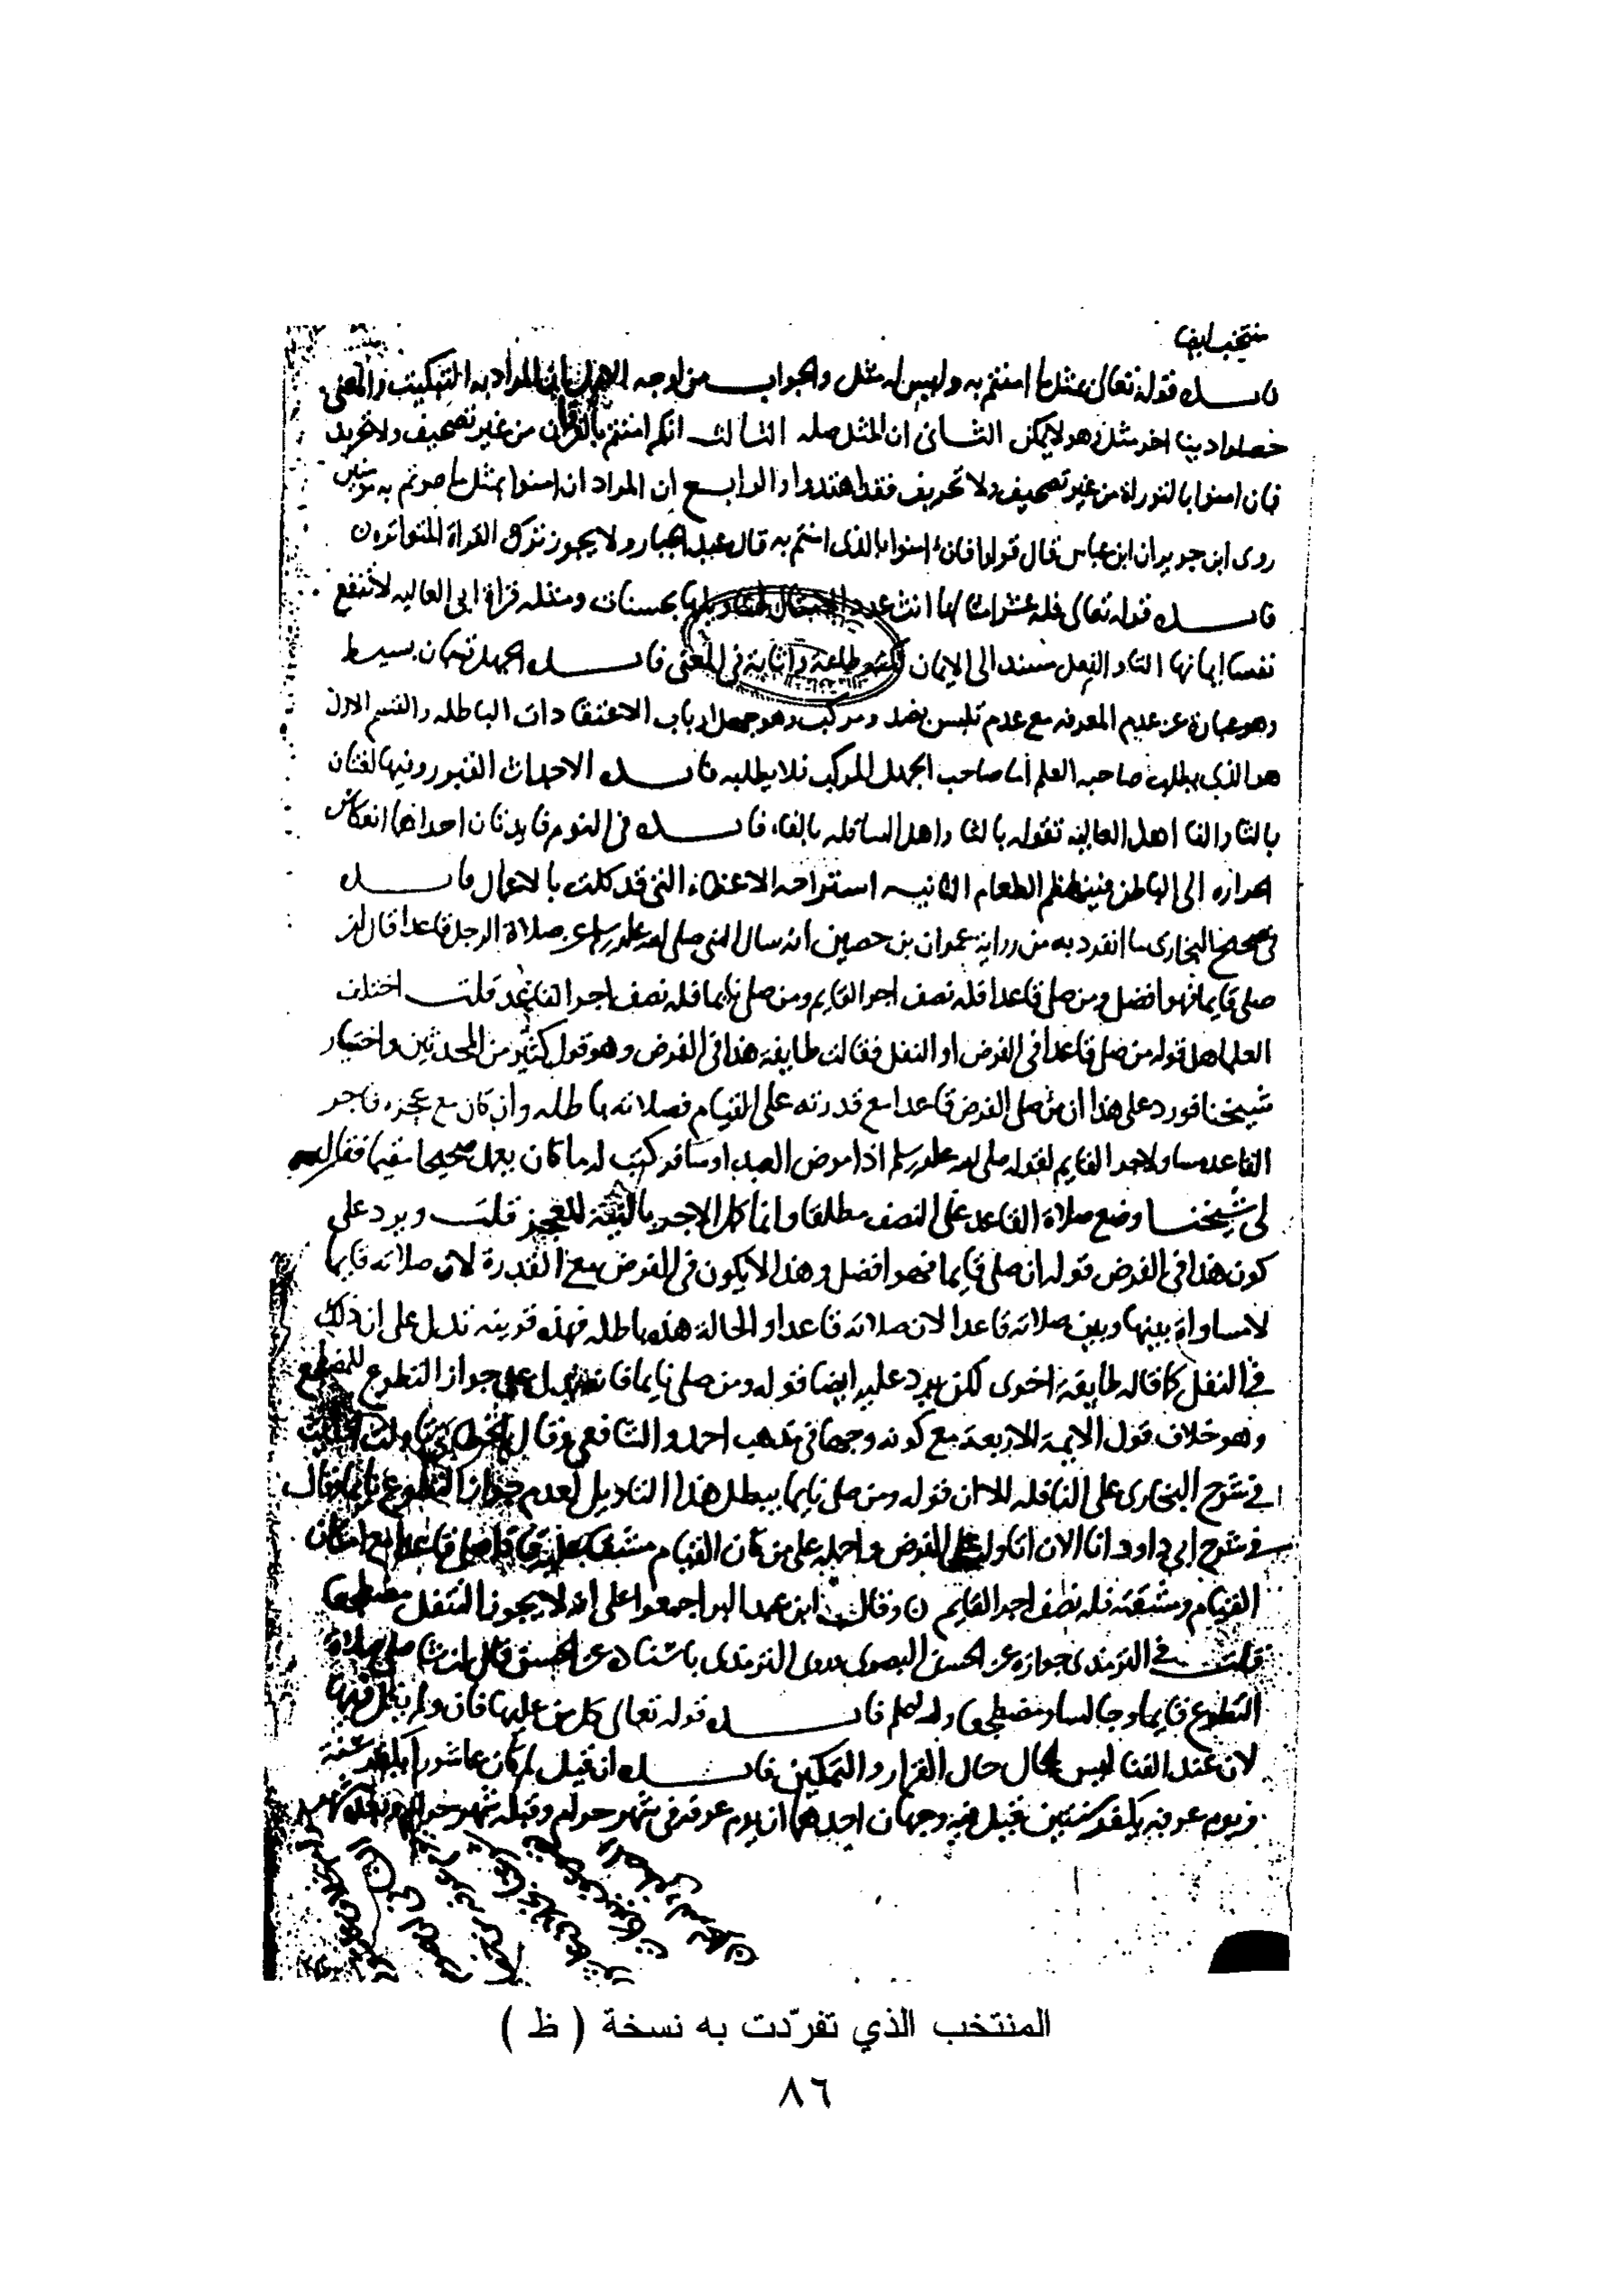 منتخب ايضا
فايـــده قوله تعالى بمثل ما امنتم به وليس له مثل والجواب من اوجه الاول ان المراد به التبكيت والمعنى
حصلوا دينا اخر مثله وهو لا يمكن الثاني ان المثل صله الثالث انكم امنتم بالقران من غير تصحيف ولا تحريف
فان امنوا بالتوراة من غير تصحيف ولا تحريف فقد اهتدوا والرابـــع ان المراد ان امنوا بمثل ما صرتم به مومنين
روى ابن جرير ان ابن عباس قال قولوا فان امنوا بالذى امنتم به قال عبد الجبار ولا يجوز ترك القراة المتواترة ن
فايـــده قوله تعالى فله عشر امثالها انث عدد بحسنات ومثله قراة ابى العاليه لا تنفع
نفسا ايمانها التاء والفعل مسند الى الايمان طاعة وانابة فى المعنى فايـــده الجهل قسمان بسيط
وهو عبارة عن عدم المعرفه مع عدم تلبس بضد ومركب وهو جهل ارباب الاعتقادات الباطله والقسم الاول
هو الذي يطلب صاحبه العلم اما صاحب الجهل المركب فلا يطلبه فايـــده الاجداث القبور وفيها لغتان
بالثاء والفا اهل العاليه تقوله بالثا واهل السافله بالفاء فايـــده فى النوم فايدتان احداهما انعكاس
الحراره الى الباطن فينهضم الطعام الثانيه استراحه الاعضاء التى قد كلت بالاعمال فايـــده
فى صحيح البخارى مما انفرد به من رواية عمران بن حصين انه سال النبى صلى الله عليه وسلم عن صلاة الرجل قاعدا قال ان
صلى قايما فهو افضل ومن صلى قاعدا فله نصف اجر القايم ومن صلى نايما فله نصف اجر القاعد قلت اختلف
العلما هل قوله من صلى قاعدا فى الفرض او النفل فقالت طايفة هذا فى الفرض وهو قول كثير من المحدثين واختيار
شيخنا فورد على هذا ان من صلى الفرض قاعدا مع قدرته على القيام فصلاته باطله وان كان مع عجزه فاجر
القاعد مساو لاجر القايم لقوله صلى الله عليه وسلم اذا مرض العبد او سافر كتب له ما كان يعمل صحيحا مقيما فقال
لى شيخنـــا وضع صلاة القاعد على النصف مطلقا وانما كمل الاجر بالنية للعجز قلت ويرد على
كون هذا فى الفرض قوله ان صلى قايما فهو افضل وهذا لا يكون فى الفرض مع القدرة لان صلاته قايما
لا مساواة بينها وبين صلاته قاعدا لان صلاته قاعدا والحالة هذه باطله فهذه قرينه تدل على ان ذلك
في النفل كما قاله طايفة اخرى لكن يرد عليه ايضا قوله ومن صلى نايما فانه يدل على جواز التطوع للمضطجع
وهو خلاف قول الايمة الاربعة مع كونه وجها فى مذهب احمد والشافعى وقال الخطابى تاولت الحديث
في شرح البخارى على النافله الا ان قوله ومن صلى نايما يبطل هذا التاويل لعدم جواز التطوع نايما وقال
في شرح ابي داود انا الان اتاوله على الفرض واحمله على من كان القيام مشقا عليه فاذا صلى قاعدا مع امكان
القيام ومشقته فله نصف اجر القايم ن وقال ابن عبد البر اجمعوا على انه لا يجوز التنفل مضطجعا
قلت في الترمذى جوازه عن الحسن البصرى روى الترمذى باسناده عن الحسن قال ان شا صلى صلاة
التطوع قايما وجالسا ومضطجعا والله اعلم فايـــده قوله تعالى كل من عليها فان ولم يقل فيها
لان عند الفنا ليس الحال حال القرار والتمكين فايـــده ان قيل لم كان عاشورا يكفر سنة
ويوم عرفة يكفر سنتين قيل فيه وجهان احدهما ان يوم عرفة فى شهر حرام وقبله شهر حرام وبعده شهر
المنتخب الذي تفرّدت به نسخة ( ظ )
٨٦